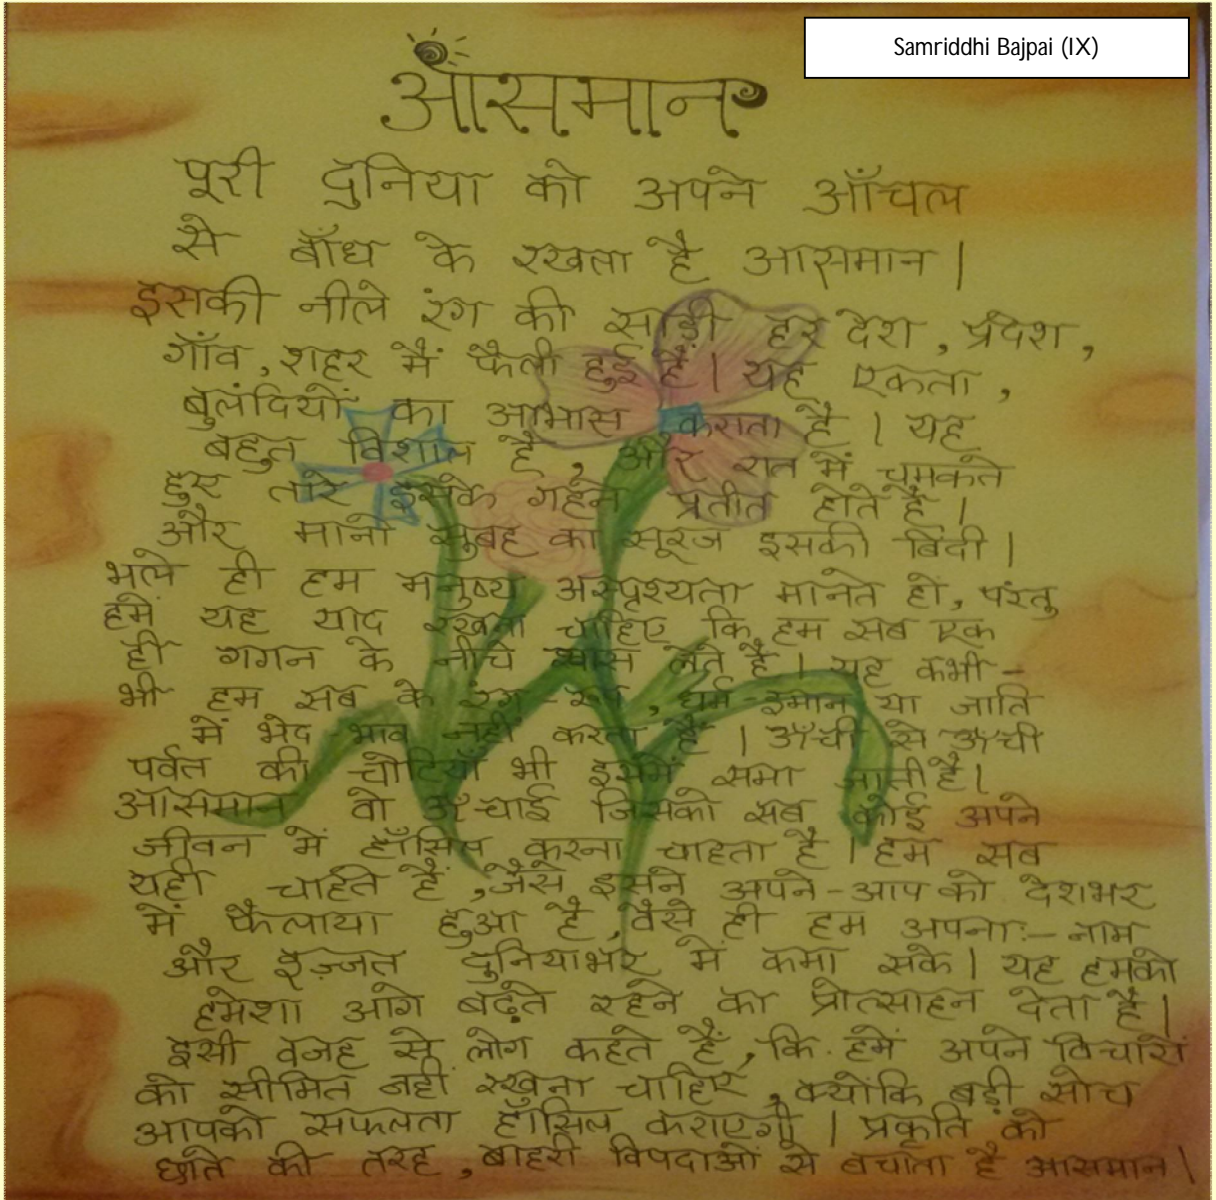 Samriddhi Bajpai (IX)
आँसमान
पूरी दुनिया को अपने आँचल
से बाँध के रखता है आसमान।
इसकी नीले रंग की साड़ी हर देश, प्रदेश,
गाँव, शहर में फैली हुई है। यह एकता,
बुलंदियों का आभास कराता है। यह
बहुत विशाल है, और रात में चमकते
हुए तारे इसके गहने प्रतीत होते हैं।
और मानो सुबह का सूरज इसकी बिंदी।
भले ही हम मनुष्य अस्पृश्यता मानते हो, परंतु
हमें यह याद रखना चाहिए कि हम सब एक
ही गगन के नीचे श्वास लेते है। यह कभी-
भी हम सब के रंग-रूप, धर्म-इमान या जाति
में भेद-भाव नहीं करता है। ऊँची से ऊँची
पर्वत की चोटियाँ भी इसमें समा जाती है।
आसमान वो ऊँचाई जिसको सब कोई अपने
जीवन में हाँसिल करना चाहता है। हम सब
यही चाहते हैं, जैसे इसने अपने-आप को देशभर
में फैलाया हुआ है, वैसे ही हम अपना:- नाम
और इज़्जत दुनियाभर में कमा सके। यह हमको
हमेशा आगे बढ़ते रहने का प्रोत्साहन देता है।
इसी वजह से लोग कहते हैं, कि हमें अपने विचारों
को सीमित नहीं रखना चाहिए, क्योंकि बड़ी सोच
आपको सफलता हाँसिल कराएगी। प्रकृति को
छाते की तरह, बाहरी विपदाओं से बचाता है आसमान।